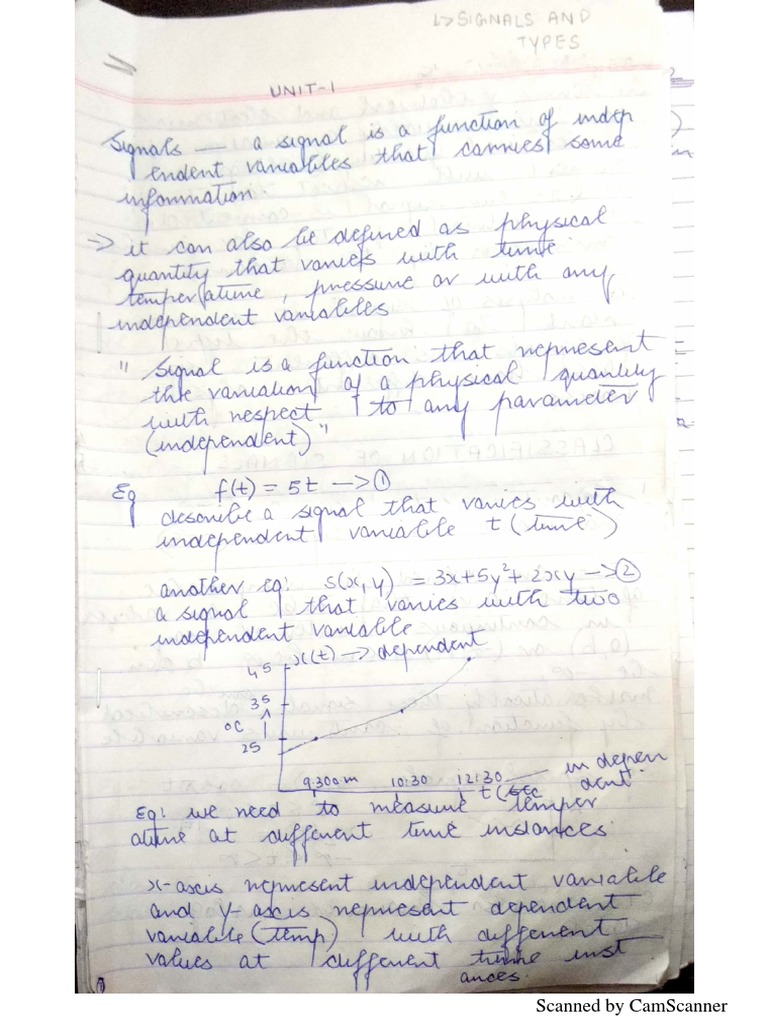 ↳ SIGNALS AND
TYPES
UNIT-1
Signals — a signal is a function of indep
endent variables that carries some
information.
→ it can also be defined as physical
quantity that varies with time
temperature, pressure or with any
independent variables
" Signal is a function that represent
the variation of a physical quantity
with respect to any parameter
(independent)"
Eg f(t) = 5t → ①
describe a signal that varies with
independent variable t (time)
another eg: s(x, y) = 3x+5y²+2xy → ②
a signal that varies with two
independent variable
45 x(t) → dependent
35
°C
25
9:300m 10:30 12:30 indepen
t (sec dent
Eg: we need to measure temper
ature at different time instances
x-axis represent independent variable
and y-axis represent dependent
variable (temp) with different
values at different time inst
ances.
Scanned by CamScanner